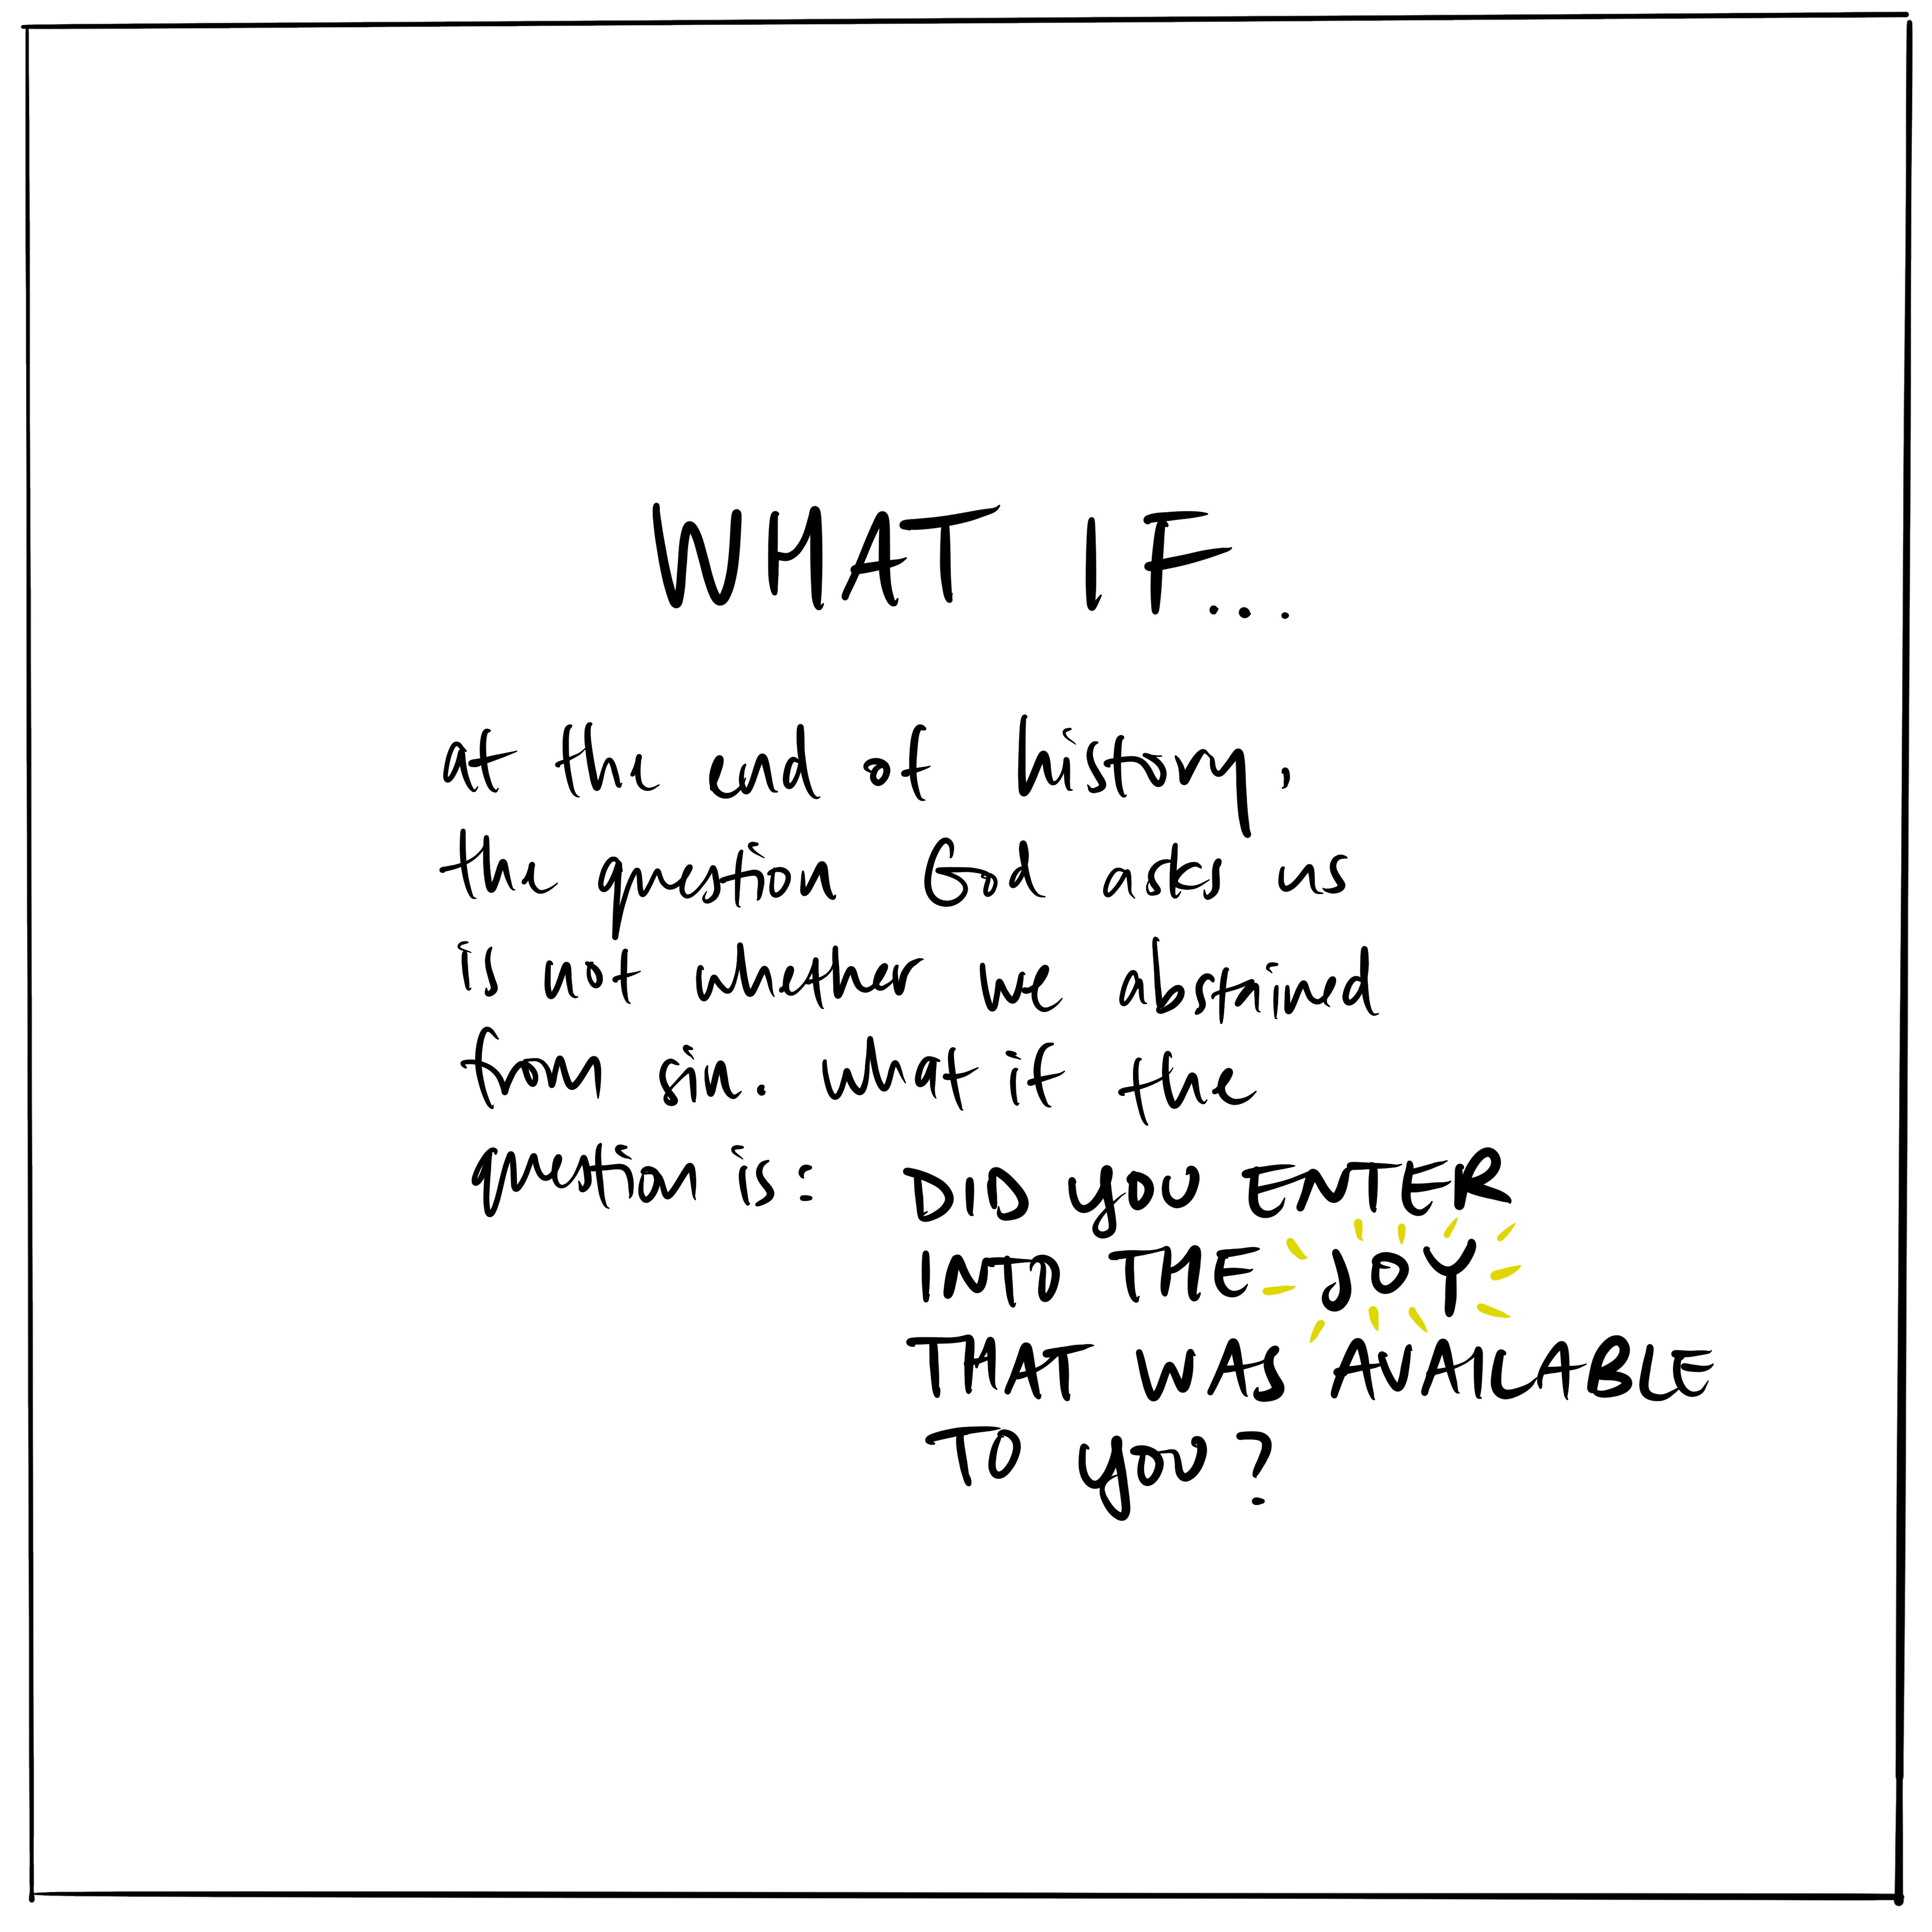 WHAT IF....
at the end of history,
the question God asks us
is not whether we abstained
from sin. what if the
question is: DID yOU ENTER
INTO THE JOY
THAT WAS AVAILABLE
TO yOU?